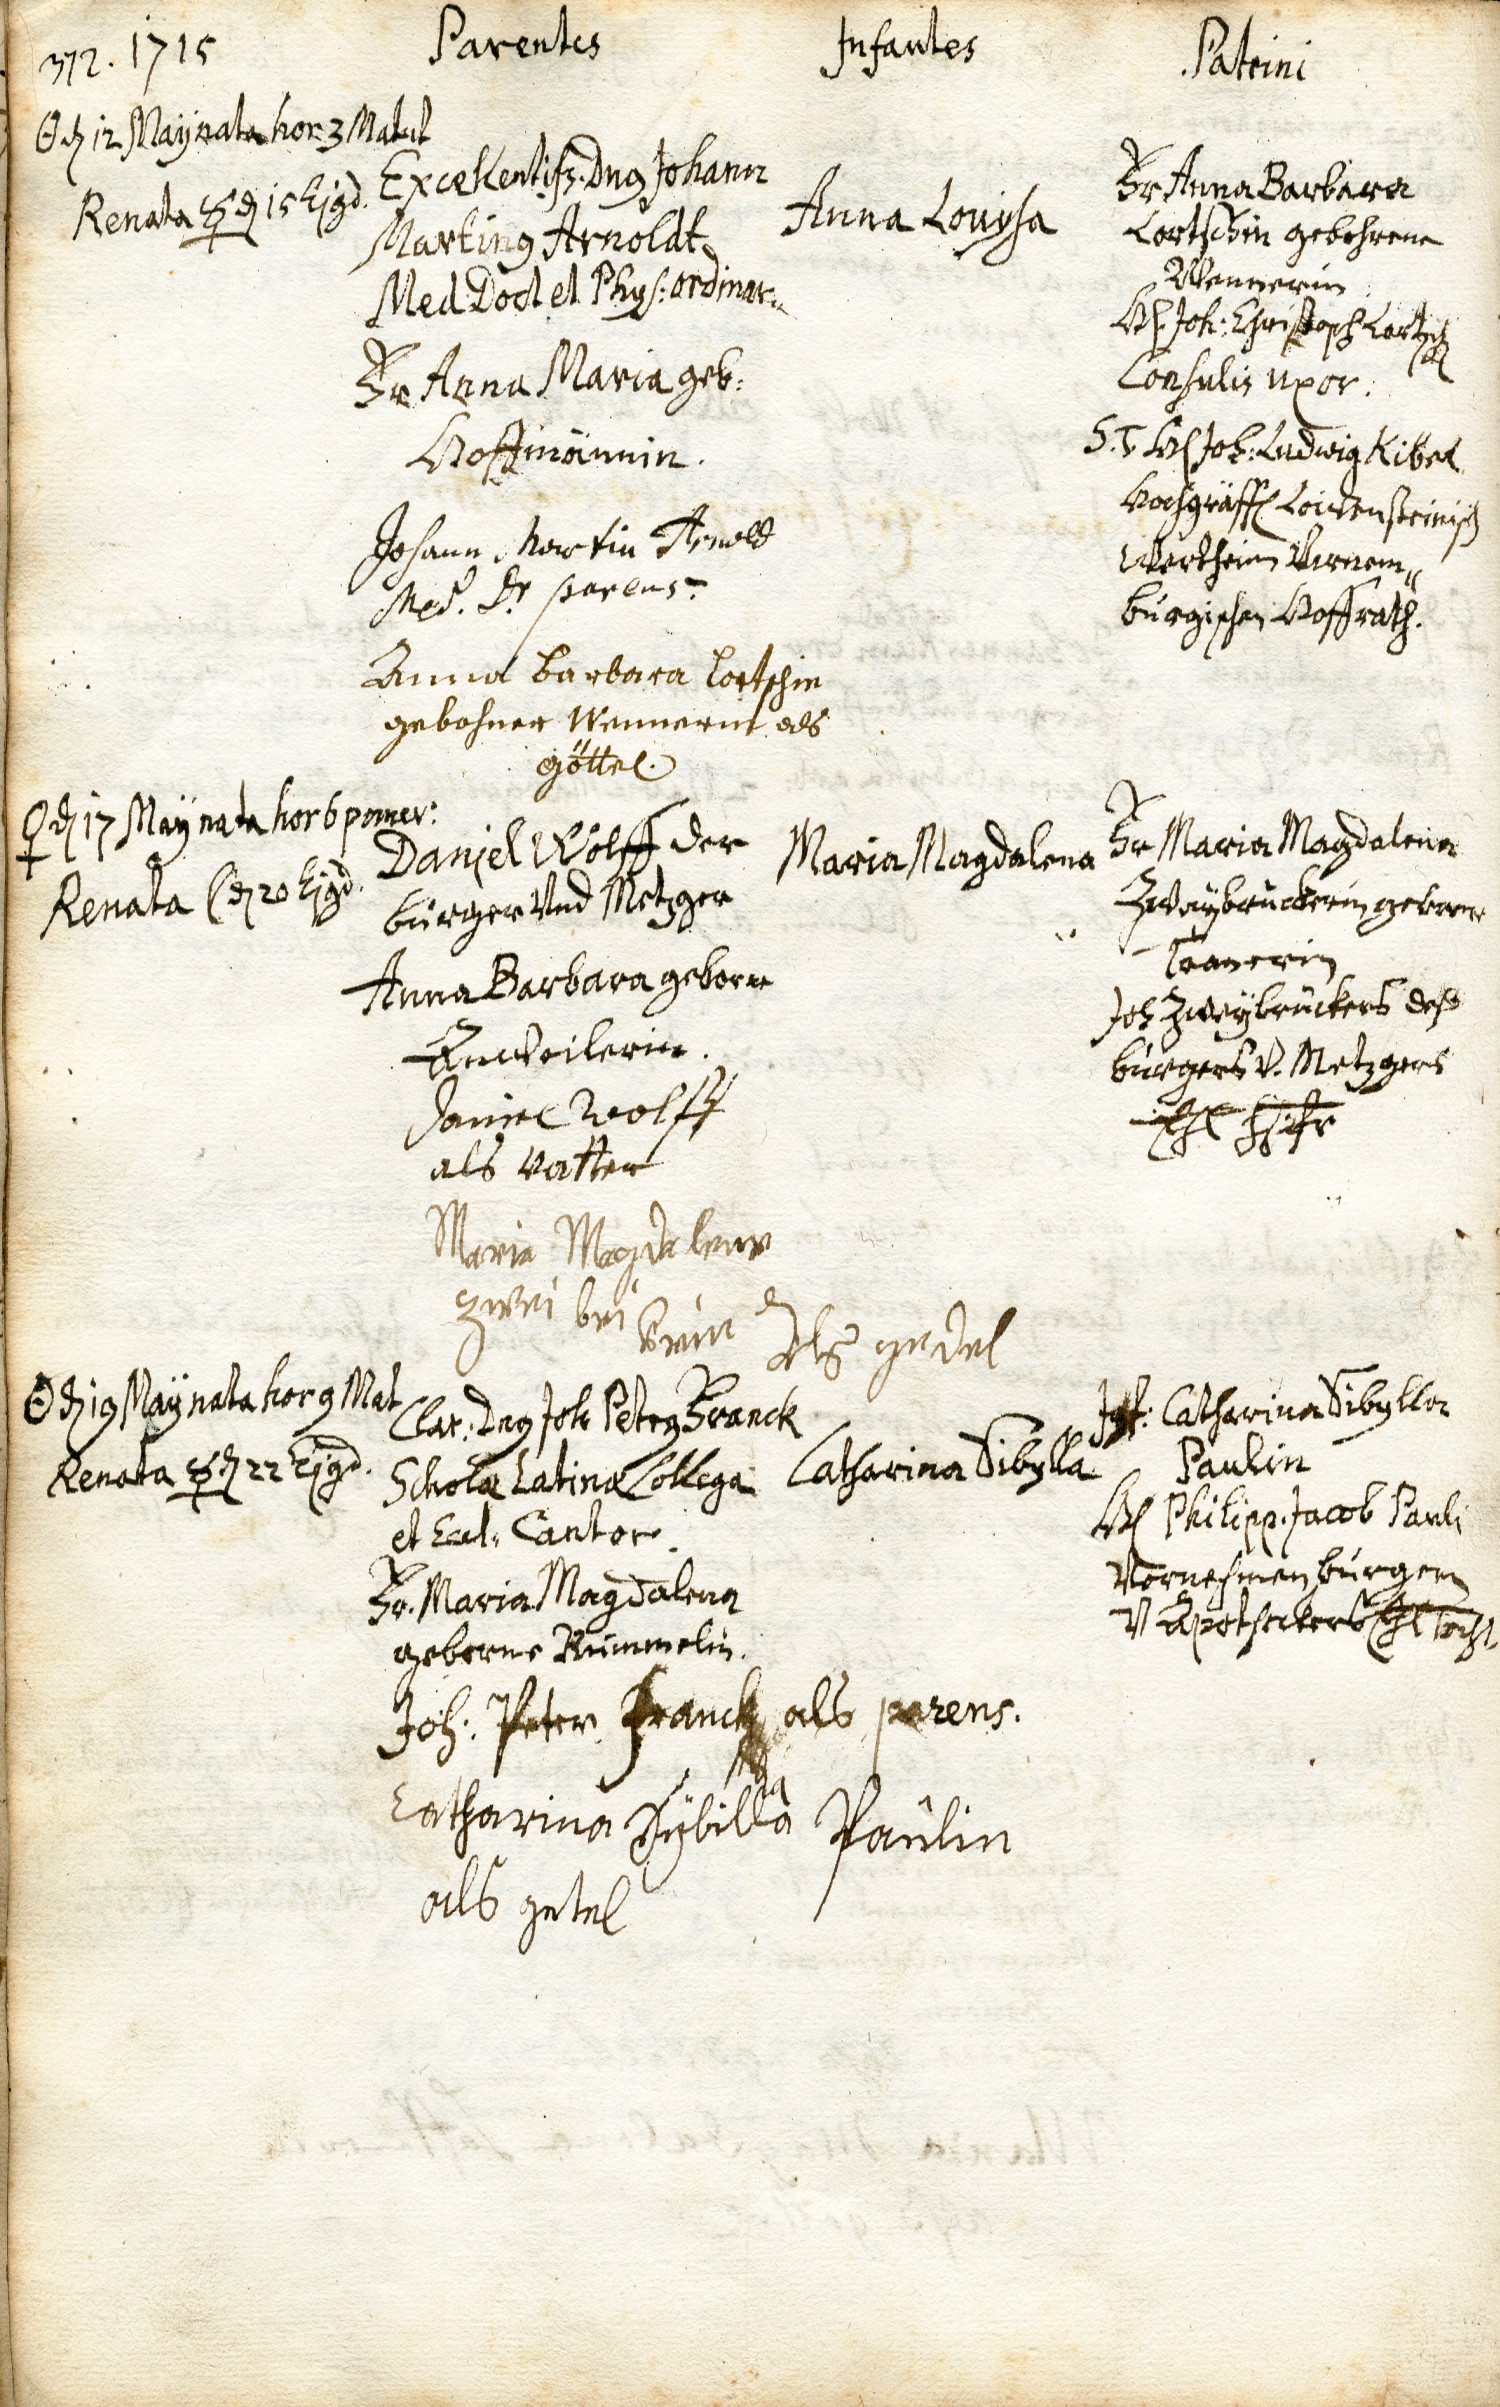 372. 1715
Parentes
Infantes
Patrini
☉ d 12 Maÿ nata hor 3 Matut
Renata ☿ d 15 Ejgd.
Excellentiss. Dns Johann
Martins Arnoldt
Med Doct et Phys: ordinar.
Fr Anna Maria geb:
Hoffmännin.
Johann Martin Arnold
Med. Dr parens.
Anna Barbara Lortschin
gebohner Wennerin als
göttel.
Anna Louysa
Fr Anna Barbara
Lortschin gebohrene
Wennerin
H Joh: Christoph Lortsch
Consulis uxor.
S. T. H Joh: Ludwig Kibel
Hochgräffl Löwensteinisch
Wertheim Virnem„
burgischen Hoffrath.
♀ d 17 Maÿ nata hor 6 pomer:
Renata ☾ d 20 Ejgd.
Daniel Wolff der
burger Und Metzger
Anna Barbara geborne
Anweilerin.
Daniel Wolff
als Vatter
Maria Magdalena
zwei bri
als gedel
Maria Magdalena
Fr Maria Magdalena
Zweÿbruckerin geborne
Joh Zweÿbruckers deß
burgers V. Metzgers
☉ d 19 Maÿ nata hor 9 Mat
Renata ☿ d 22 Ejgd.
Clar. Dns Joh Peters Franck
Scholæ Latinæ Collega
et Eccl. Cantor.
Fr. Maria Magdalena
geborne Kummelin.
Joh: Peter Franck als parens.
Catharina Sÿbilla Paulin
als getel
Catharina Sibylla
Jgf: Catharina Sibylla
Paulin
H Philipp Jacob Pauli
Vornehmen burgers
V Apotheckers Ehl Tocht.